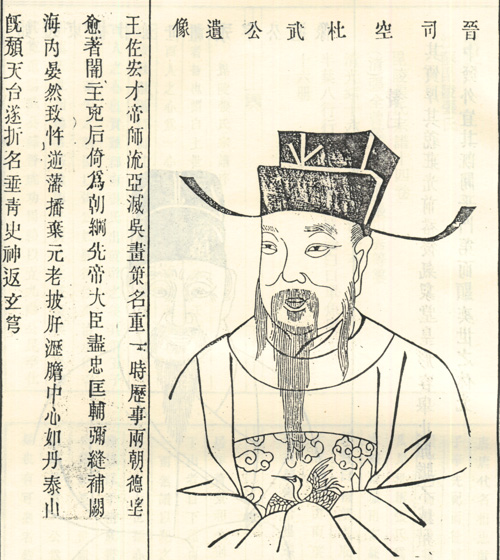 晉司空杜武公遺像
王佐宏才帝師流亞滅吳畫策名重一時歷事兩朝德望
愈著闇主兇后倚爲朝綱先帝大臣盡忠匡輔彌縫補闕
海内晏然致忤逆藩播棄元老披肝瀝膽中心如丹泰山
旣頹天台遂折名垂青史神返玄穹